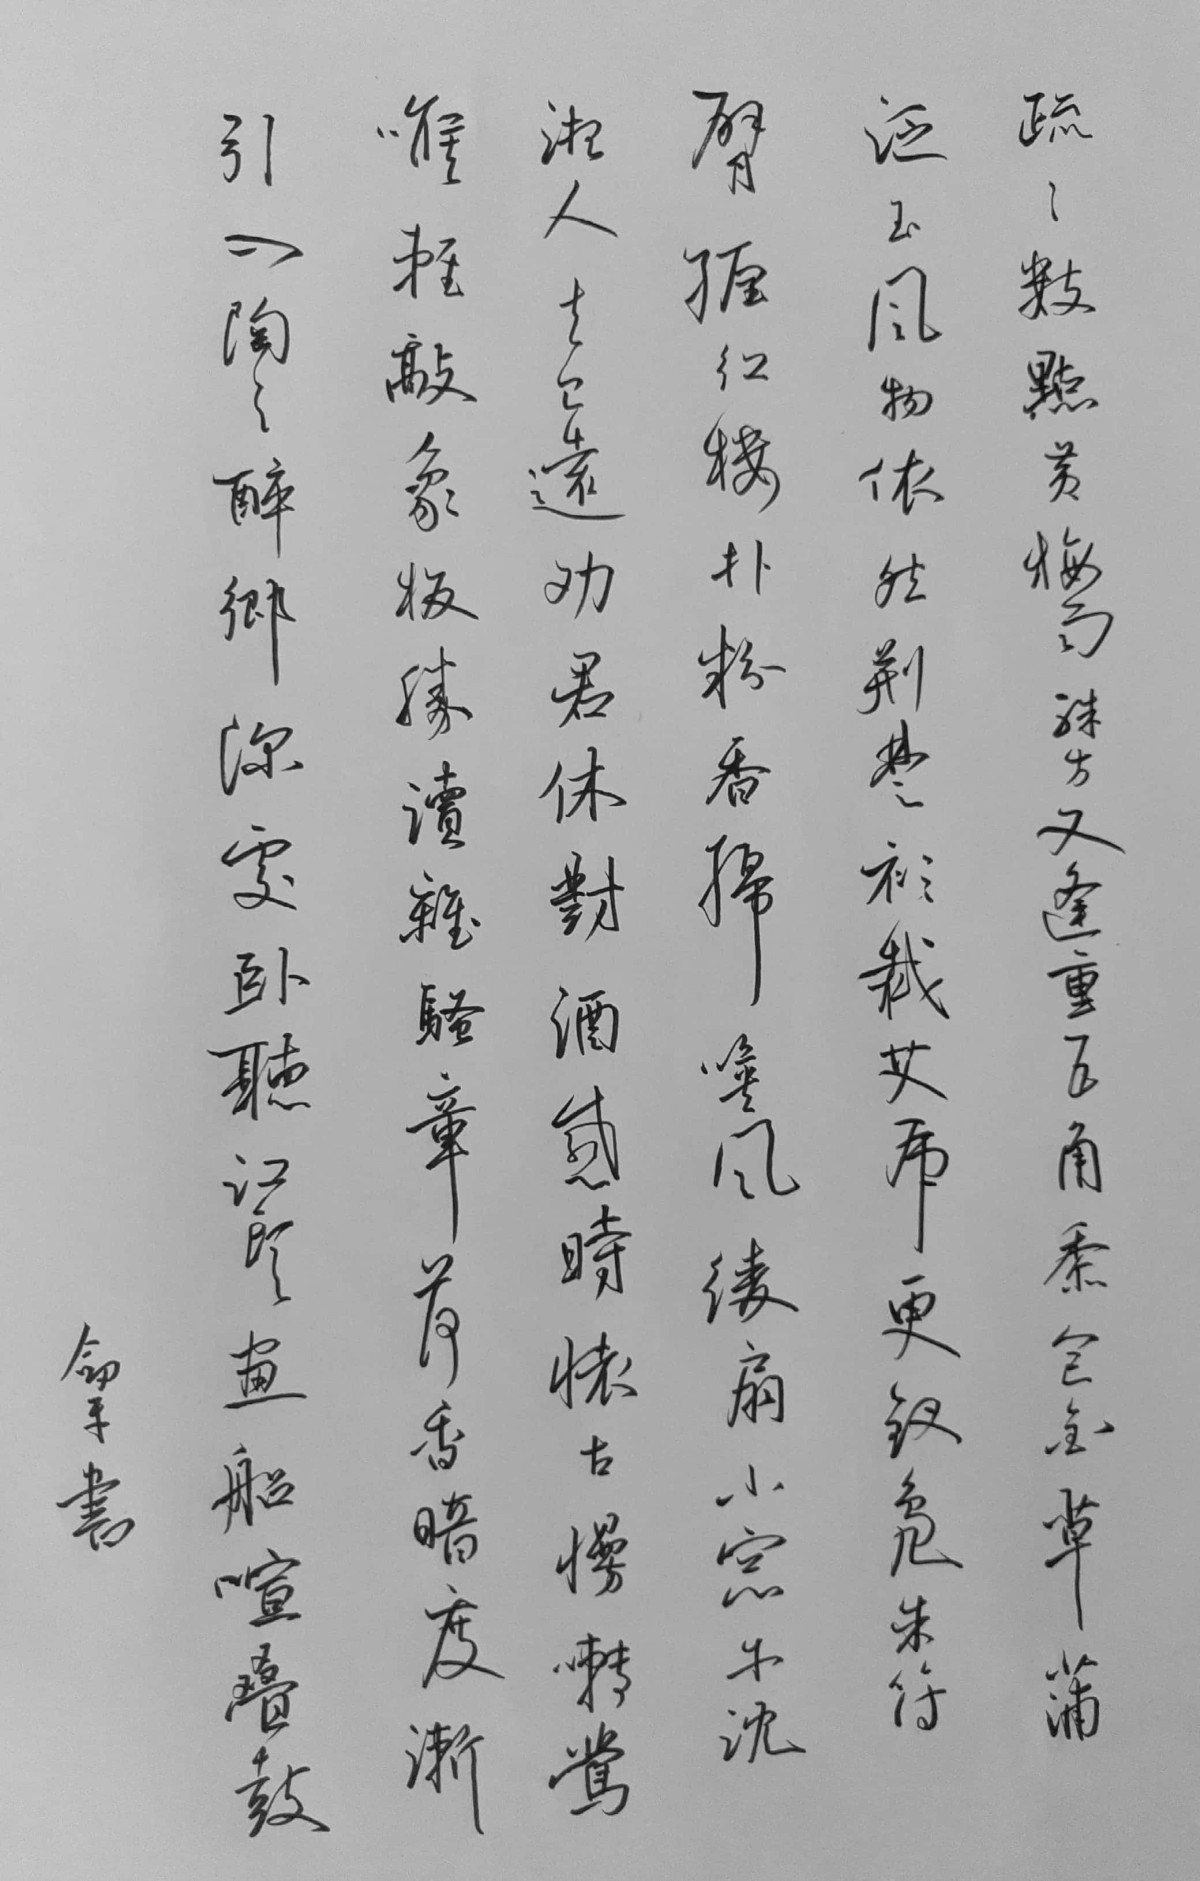 疏々數點黃梅雨殊方又逢重五角黍包金草蒲
泛玉風物依然荊楚衫裁艾虎更釵鳧朱符
臂纏紅縷扑粉香綿喚風綾扇小窓午沈
湘人去已遠劝君休對酒感時懷古慢囀鶯
喉輕敲象板勝讀離騷章荷香暗度漸
引入陶々醉鄉深處臥聽江頭畫船喧疊鼓
書